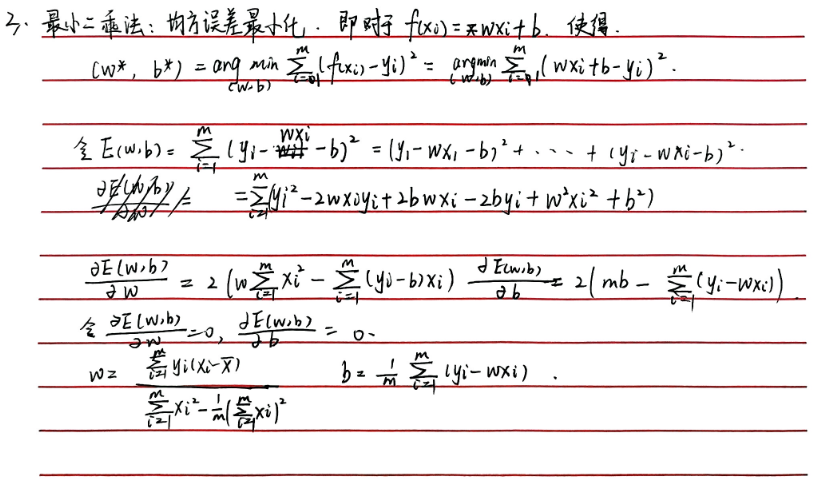 3. 最小二乘法: 均方误差最小化. 即对于 f(xi)=wxi+b. 使得.
(w*, b*) = arg min_(w,b) ∑_{i=1}^{m} (f(xi)-yi)² = argmin_(w,b) ∑_{i=1}^{m} (wxi+b-yi)².
令 E(w,b) = ∑_{i=1}^{m} (yi-wxi-b)² = (y₁-wx₁-b)² + ···· + (yi-wxi-b)².
=∑_{i=1}^{m}(yi²-2wxiyi+2bwxi-2byi+w²xi²+b²)
∂E(w,b)/∂w = 2(w∑_{i=1}^{m} xi² - ∑_{i=1}^{m} (yi-b)xi) ∂E(w,b)/∂b = 2(mb - ∑_{i=1}^{m} (yi-wxi)).
令 ∂E(w,b)/∂w=0, ∂E(w,b)/∂b = 0.
w= ∑_{i=1}^{m} yi(xi-x̄) / (∑_{i=1}^{m} xi² - 1/m(∑_{i=1}^{m} xi)²) b= 1/m ∑_{i=1}^{m} (yi-wxi) .